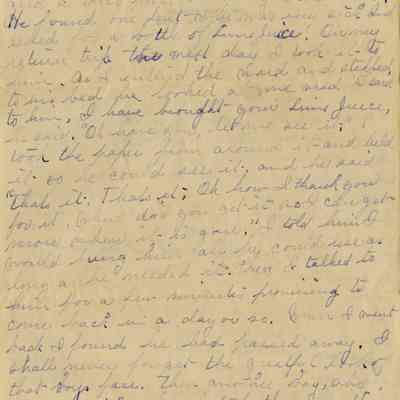 He found one
asked for a bottle of Lime Juice. On my
return trip the next day I took it to
him. As I entered the ward and stepped
to his bed he looked and I said
to him, I have brought your Lime Juice,
he said "Oh have you, let me see it," I
took the paper from around it and held
it so he could see it, and he said
"Thats it, Thats it, Oh how I thank you
for it, where did you get it and can you get
more when it is gone." I told him I
would bring him all he could use as
long as he needed it. Then I talked to
him for a few minutes promising to
come back in a day or so. When I went
back I found he had passed away. I
shall never forget the grateful look of
that boys face. Then another boy,